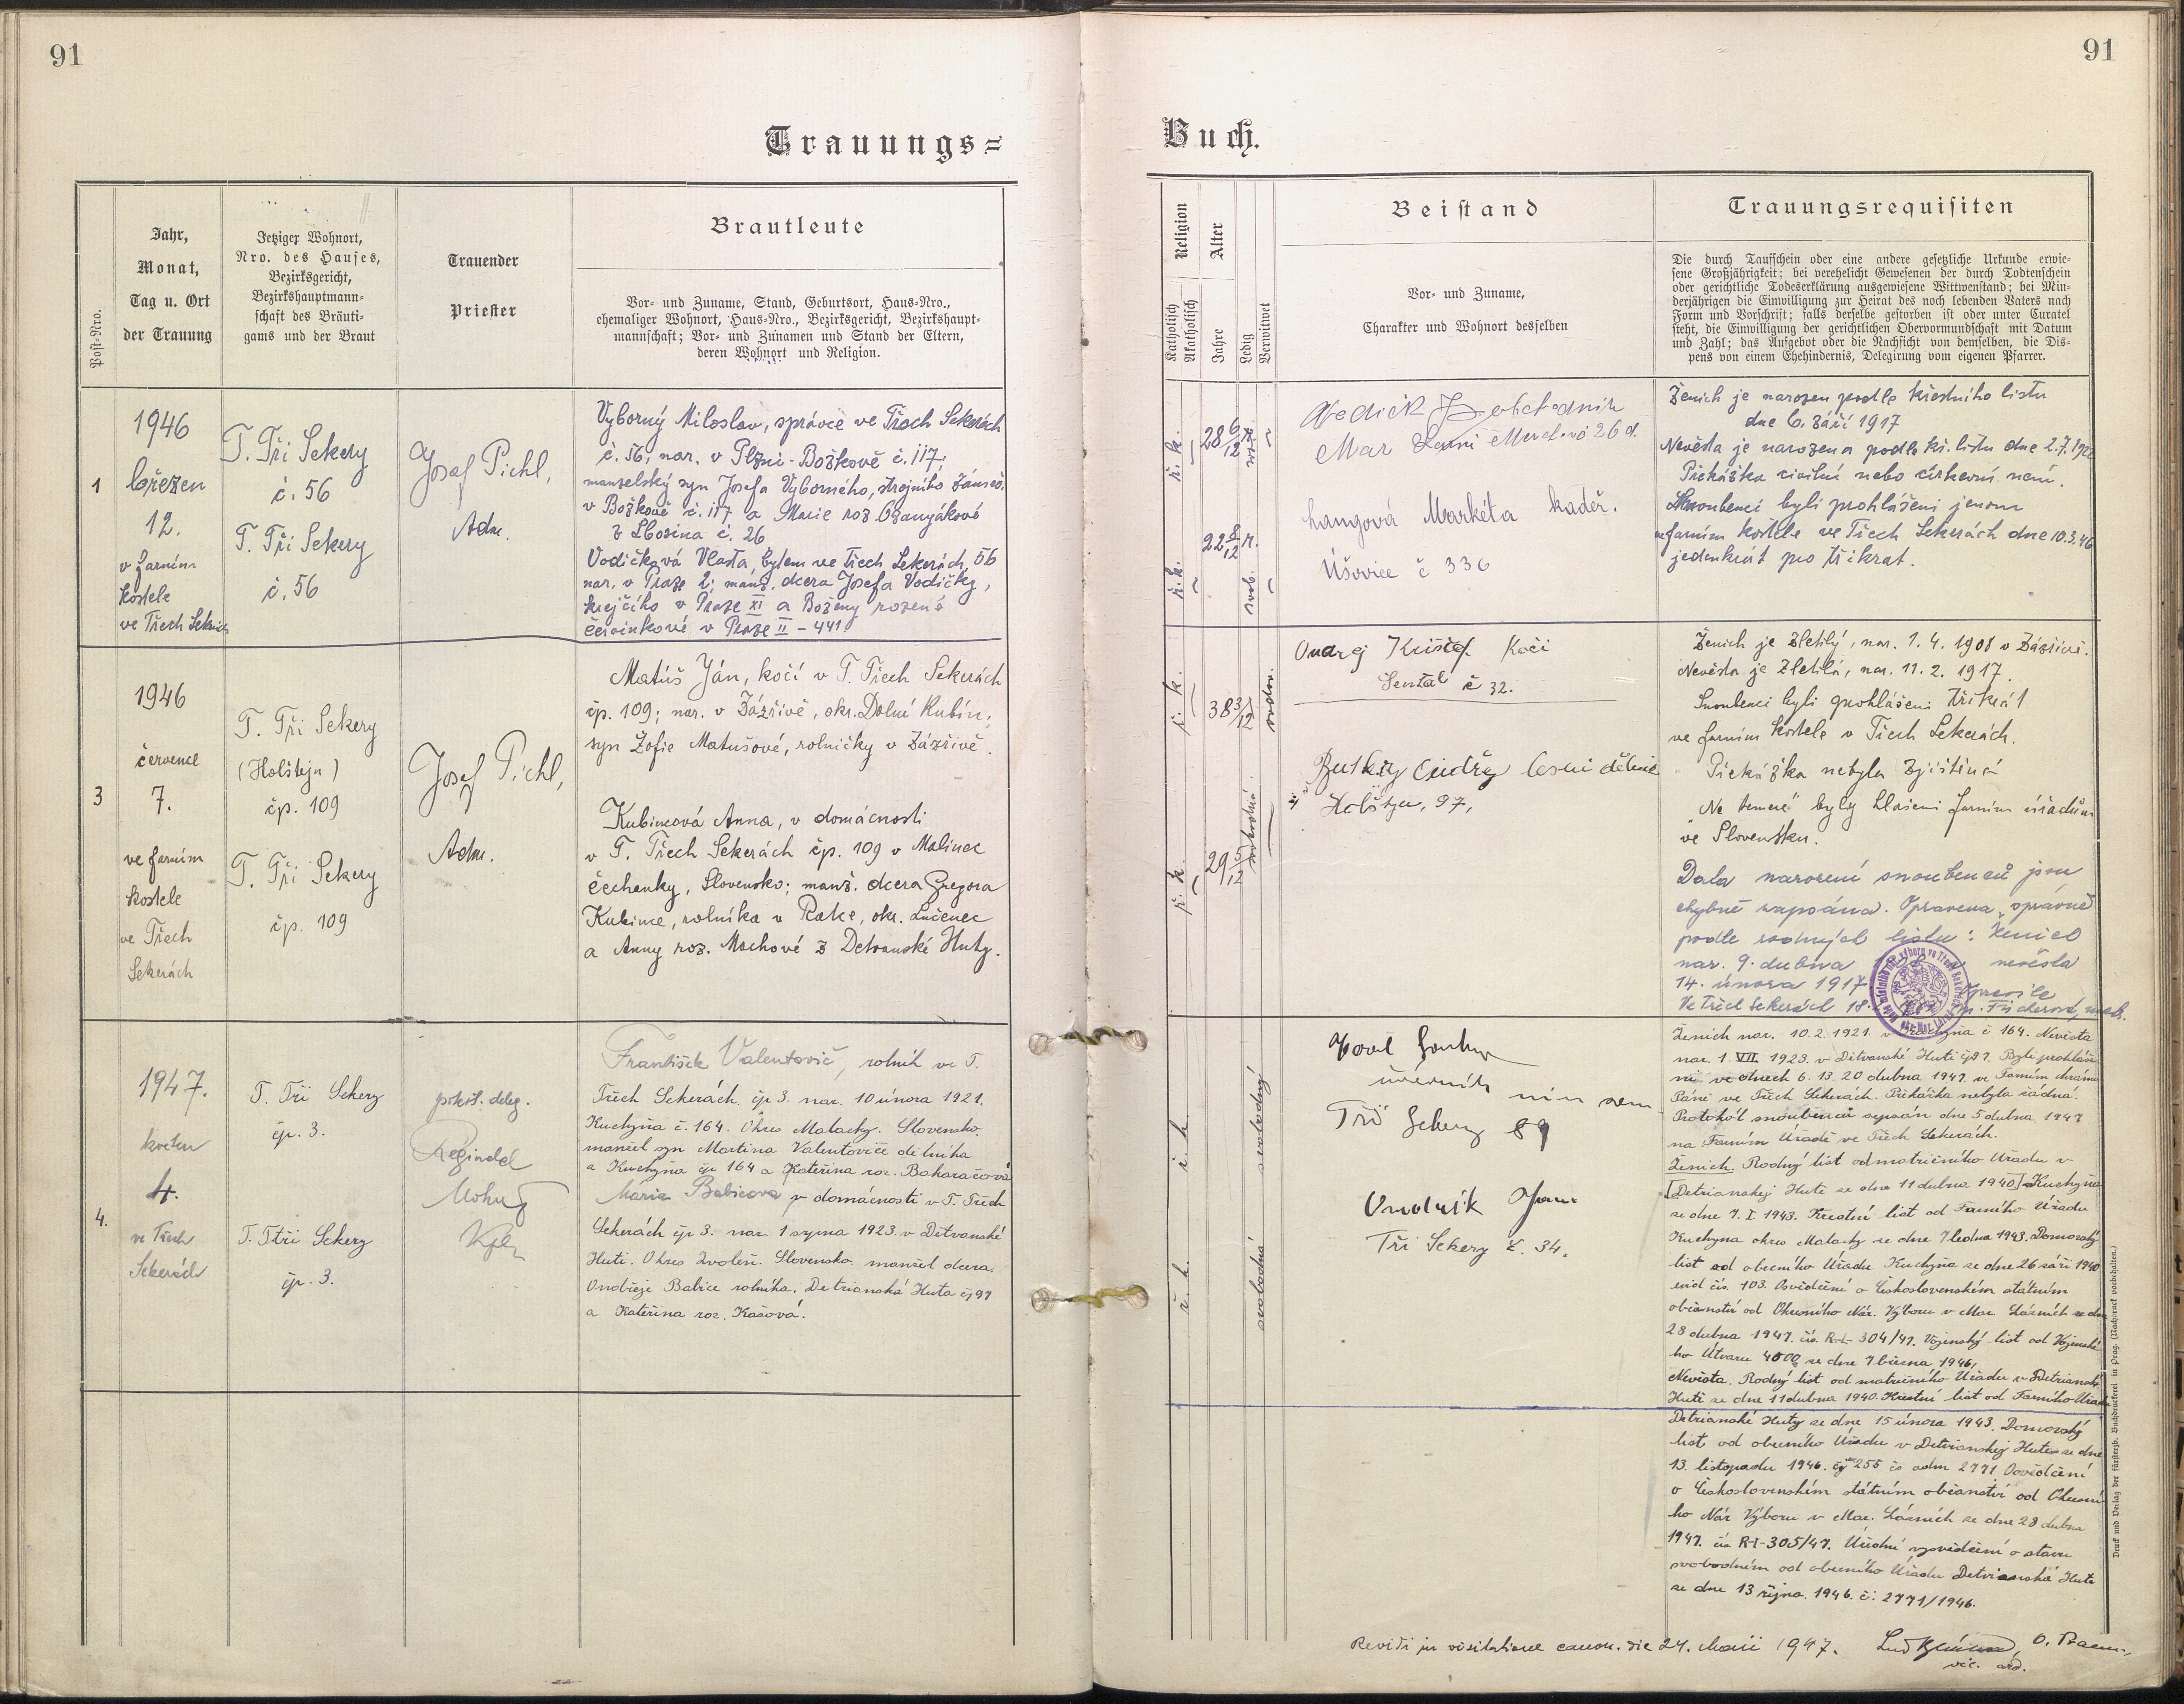 91
91
Trauungs=
Buch.
Post-Nro.
Jahr,
Monat,
Tag u. Ort
der Trauung
Jetziger Wohnort,
Nro. des Hauses,
Bezirksgericht,
Bezirkshauptmann-
schaft des Bräuti-
gams und der Braut
Trauender
Priester
Brautleute
Vor- und Zuname, Stand, Geburtsort, Haus-Nro.,
ehemaliger Wohnort, Haus-Nro., Bezirksgericht, Bezirkshaupt-
mannschaft; Vor- und Zunamen und Stand der Eltern,
deren Wohnort und Religion.
Religion
Katholisch
Akatholisch
Alter
Jahre
Ledig
Verwitwet
Beistand
Vor- und Zuname,
Charakter und Wohnort desselben
Trauungsrequisiten
Die durch Taufschein oder eine andere gesetzliche Urkunde erwie-
sene Großjährigkeit; bei verehelicht Gewesenen der durch Todtenschein
oder gerichtliche Todeserklärung ausgewiesene Wittwenstand; bei Min-
derjährigen die Einwilligung zur Heirat des noch lebenden Vaters nach
Form und Vorschrift; falls derselbe gestorben ist oder unter Curatel
steht, die Einwilligung der gerichtlichen Obervormundschaft mit Datum
und Zahl; das Aufgebot oder die Nachsicht von demselben, die Dis-
pens von einem Ehehindernis, Delegirung vom eigenen Pfarrer.
1
1946
březen
12.
v farním
kostele
ve Třech Sekerách
T. Tři Sekery
č. 56
T. Tři Sekery
č. 56
Josef Pichl,
Adm.
Vyborný Miloslav, správce ve Třech Sekerách
č. 56, nar. v Plzni-Božkově č. 117,
manželský syn Josefa Vyborného, strojního zámeč.
v Božkově č. 117 a Marie roz.
z č. 26
Vodičková Vlasta, bytem ve Třech Sekerách, 56
nar. v Praze 2, manž. dcera Josefa Vodičky,
krejčího v Praze XI a Boženy rozené
Červinkové v Praze II - 441
ř. k.
28 6/12
ř. k.
22 8/12
svob.
obchodník
Mar Lázně 26 d.
Langová Markéta kadeř.
Úšovice č 336
Ženich je narozen podle křestního listu
dne 6. září 1917
Nevěsta je narozena podle kř. listu dne 2.7.
Překážka civilní nebo církevní není.
Snoubenci byli prohlášeni jenom
farním kostele ve Třech Sekerách dne 10.3.46
jedenkrát pro třikrát.
3
1946
července
7.
ve farním
kostele
ve Třech
Sekerách
T. Tři Sekery
(Holštejn)
čp. 109
T. Tři Sekery
čp. 109
Josef Pichl,
Adm.
Matúš Ján, kočí v T. Třech Sekerách
čp. 109; nar. v Zázřivě, okr. Dolní Kubín;
syn Žofie Matušové, rolničky v Zázřivě.
Kubincová Anna, v domácnosti
v T. Třech Sekerách čp. 109 v Malinec
čechanky, Slovensko; manž. dcera Gregora
Kubince, rolníka v , okr. Lučenec
a Anny roz. Machové z Detvanské Huty.
ř. k.
38 3/12
ř. k.
29 5/12
Ondrej Krištof Kočí
č 32.
lesní dělník
97,
Ženich je zletilý, nar. 1. 4. 1908 v Zázřivě.
Nevěsta je zletilá, nar. 11. 2. 1917.
Snoubenci byli prohlášeni třikrát
ve farním kostele v Třech Sekerách.
Překážka nebyla zjištěna
Ne temere byly hlášeni farním úřadům
ve Slovensku.
Data narození snoubenců jsou
chybně zapsána. Opravena správně
podle rodných listů: ženich
nar. 9. dubna nevěsta
14. února 1917
Ve Třech Sekerách 18.
4.
1947.
květen
4.
ve Třech
Sekerách
T. Tři Sekery
čp. 3.
T. Tři Sekery
čp. 3.
deleg.
František Valentovič, rolník ve T.
Třech Sekerách. čp 3. nar. 10 února 1921.
Kuchyňa č. 164. Okres Malacky. Slovensko.
manžel syn Martina Valentoviče dělníka
a Kuchyňa čp 164 a Kateřina roz.
Mária Babicová v domácnosti v T. Třech
Sekerách čp 3. nar 1 srpna 1923. v Detvanské
Huti. Okres Zvolen. Slovensko. manžel dcera.
Ondřeje Babice rolníka. Detvianská Huta čp 97
a Kateřina roz. Kašová.
ř. k.
svobodný
ř. k.
svobodná
Tři Sekery 89
Tři Sekery č. 34.
Ženich nar. 10.2.1921. v Kuchyňa č 164. Nevěsta
nar. 1. VIII. 1923. v Detvanské Huti Byli prohláše-
ni ve dnech 6. 13. 20 dubna 1947. ve Farním chrámu
Páně ve Třech Sekerách. Překážka nebyla žádná.
Protokól snoubenců sepsán dne 5 dubna 1947
na Farním Úřadě ve Třech Sekerách.
Ženich. Rodný list od matričního Úřadu v
Detvianskej Hute ze dne 11 dubna 1940. Kuchyňa
ze dne 7. I. 1943. Krestní list od Farního Úřadu
Kuchyňa okres Malacky ze dne 7 ledna 1943. Domovský
list od obecního Úřadu Kuchyňa ze dne 26 září 1940
evid čís. 103. Osvědčení o Československém státním
občanství od Okresního Nár. Výboru v Mar. Lázních ze dne
28 dubna 1947. čís. R-I-304/47. Vojenský list od Vojenské-
ho Útvaru 4000 ze dne 7 března 1946,
Nevěsta. Rodný list od matričního Úřadu v Detvianské
Hutě ze dne 11 dubna 1940. Krestní list od Farního Úřadu
Detvianské Huty ze dne 15 února 1943. Domovský
list od obecního Úřadu v Detvianskej Hute ze dne
13. listopadu 1946. 255 čs adm 2771 Osvědčení
o Československém státním občanství od Okresní-
ho Nár Výboru v Mar. Lázních ze dne 28 dubna
1947. čís R-I-305/47. Úřední vysvědčení o stavu
svobodném od obecního Úřadu Detvianská Hute
ze dne 13 října. 1946. č: 2771/1946.
Revidi in visitatione canon. die 24. Maii 1947.
Druck und Verlag der fürsterzb. Buchdruckerei in Prag. (Nachdruck vorbehalten.)